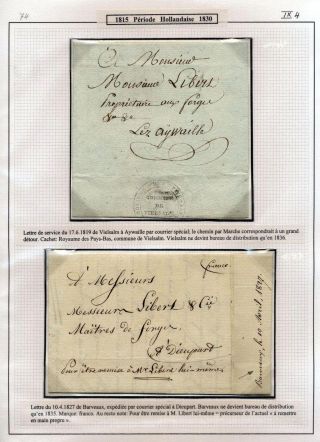 74
1815 Période Hollandaise 1830
IX 4
A Monsieur
Monsieur Libert
Propriétaire aux forges
Lez aywaille
COMMUNE
DE
VIELSALM
Lettre de service du 17.6.1819 de Vielsalm à Aywaille par courier spécial, le chemin par Marche correspondrait à un grand
détour. Cachet: Royaume des Pays-Bas, commune de Vielsalm. Vielsalm ne devint bureau de distribution qu'en 1836.
franco
A Messieurs
Messieurs Libert & Cie
Maîtres de forges
à Dieupart
Pour être remise à Mr. Libert lui-même
le 10 Avril, 1827
Lettre du 10.4.1827 de Barveaux, expédiée par courier spécial à Dieupart. Barveaux ne devient bureau de distribution
qu'en 1835. Marque: franco. Au reste note: Pour être remise à M. Libert lui-même = précurseur de l'actuel « à remettre
en main propre ».